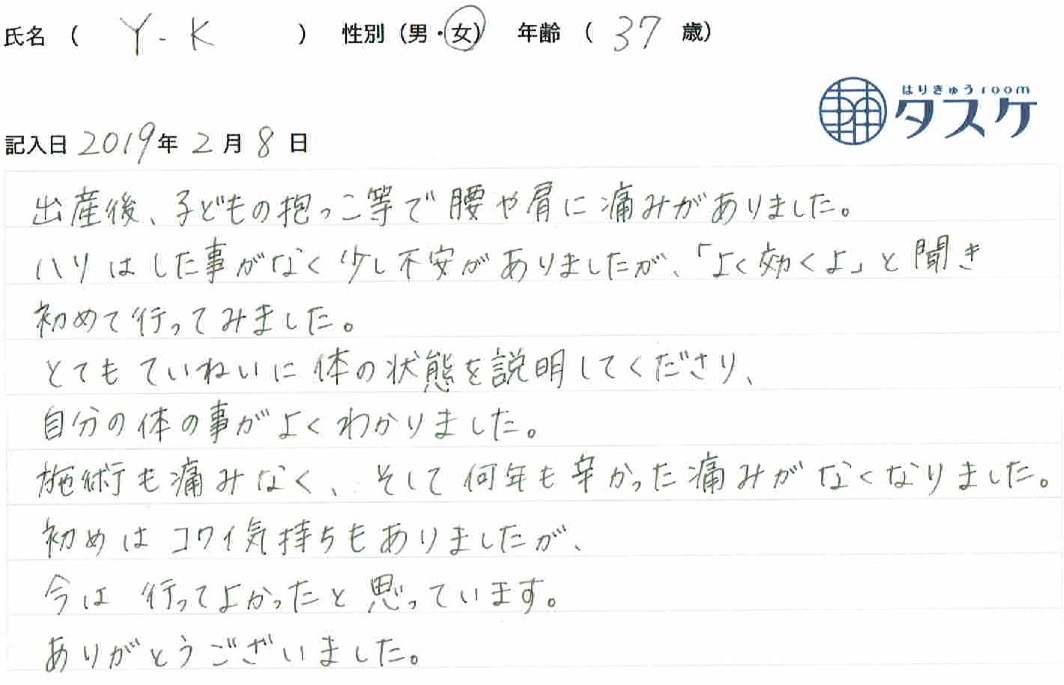 氏名 ( Y-K ) 性別 (男・女) 年齢 ( 37 歳)
はりきゅうroom
タスケ
記入日 2019年 2月 8日
出産後、子どもの抱っこ等で腰や肩に痛みがありました。
ハリはした事がなく少し不安がありましたが、「よく効くよ」と聞き
初めて行ってみました。
とてもていねいに体の状態を説明してくださり、
自分の体の事がよくわかりました。
施術も痛みなく、そして何年も辛かった痛みがなくなりました。
初めはコワイ気持ちもありましたが、
今は行ってよかったと思っています。
ありがとうございました。